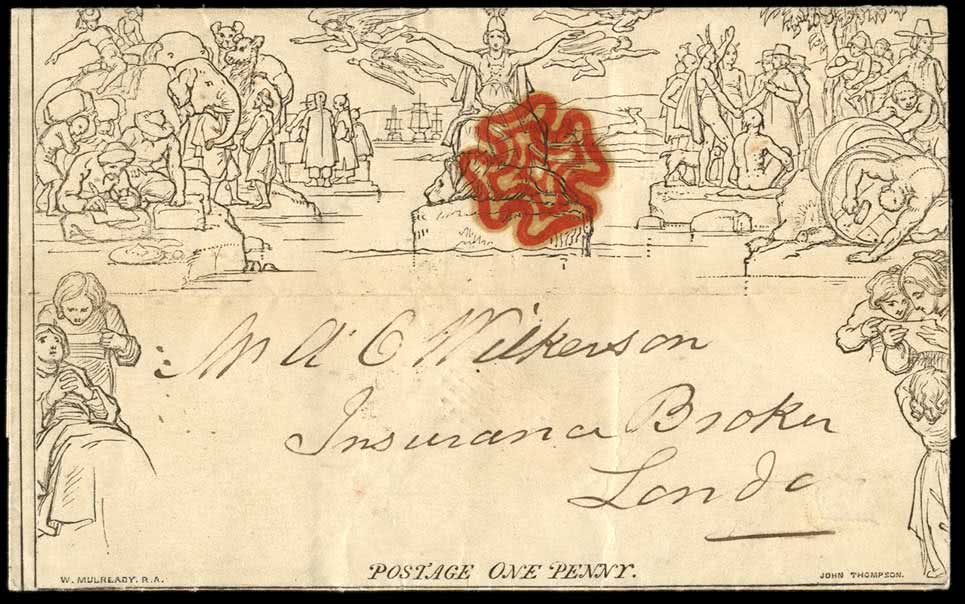 Mr A C Wilkerson
Insurance Broker
Londo
POSTAGE ONE PENNY.
W. MULREADY. R.A.
JOHN THOMPSON.